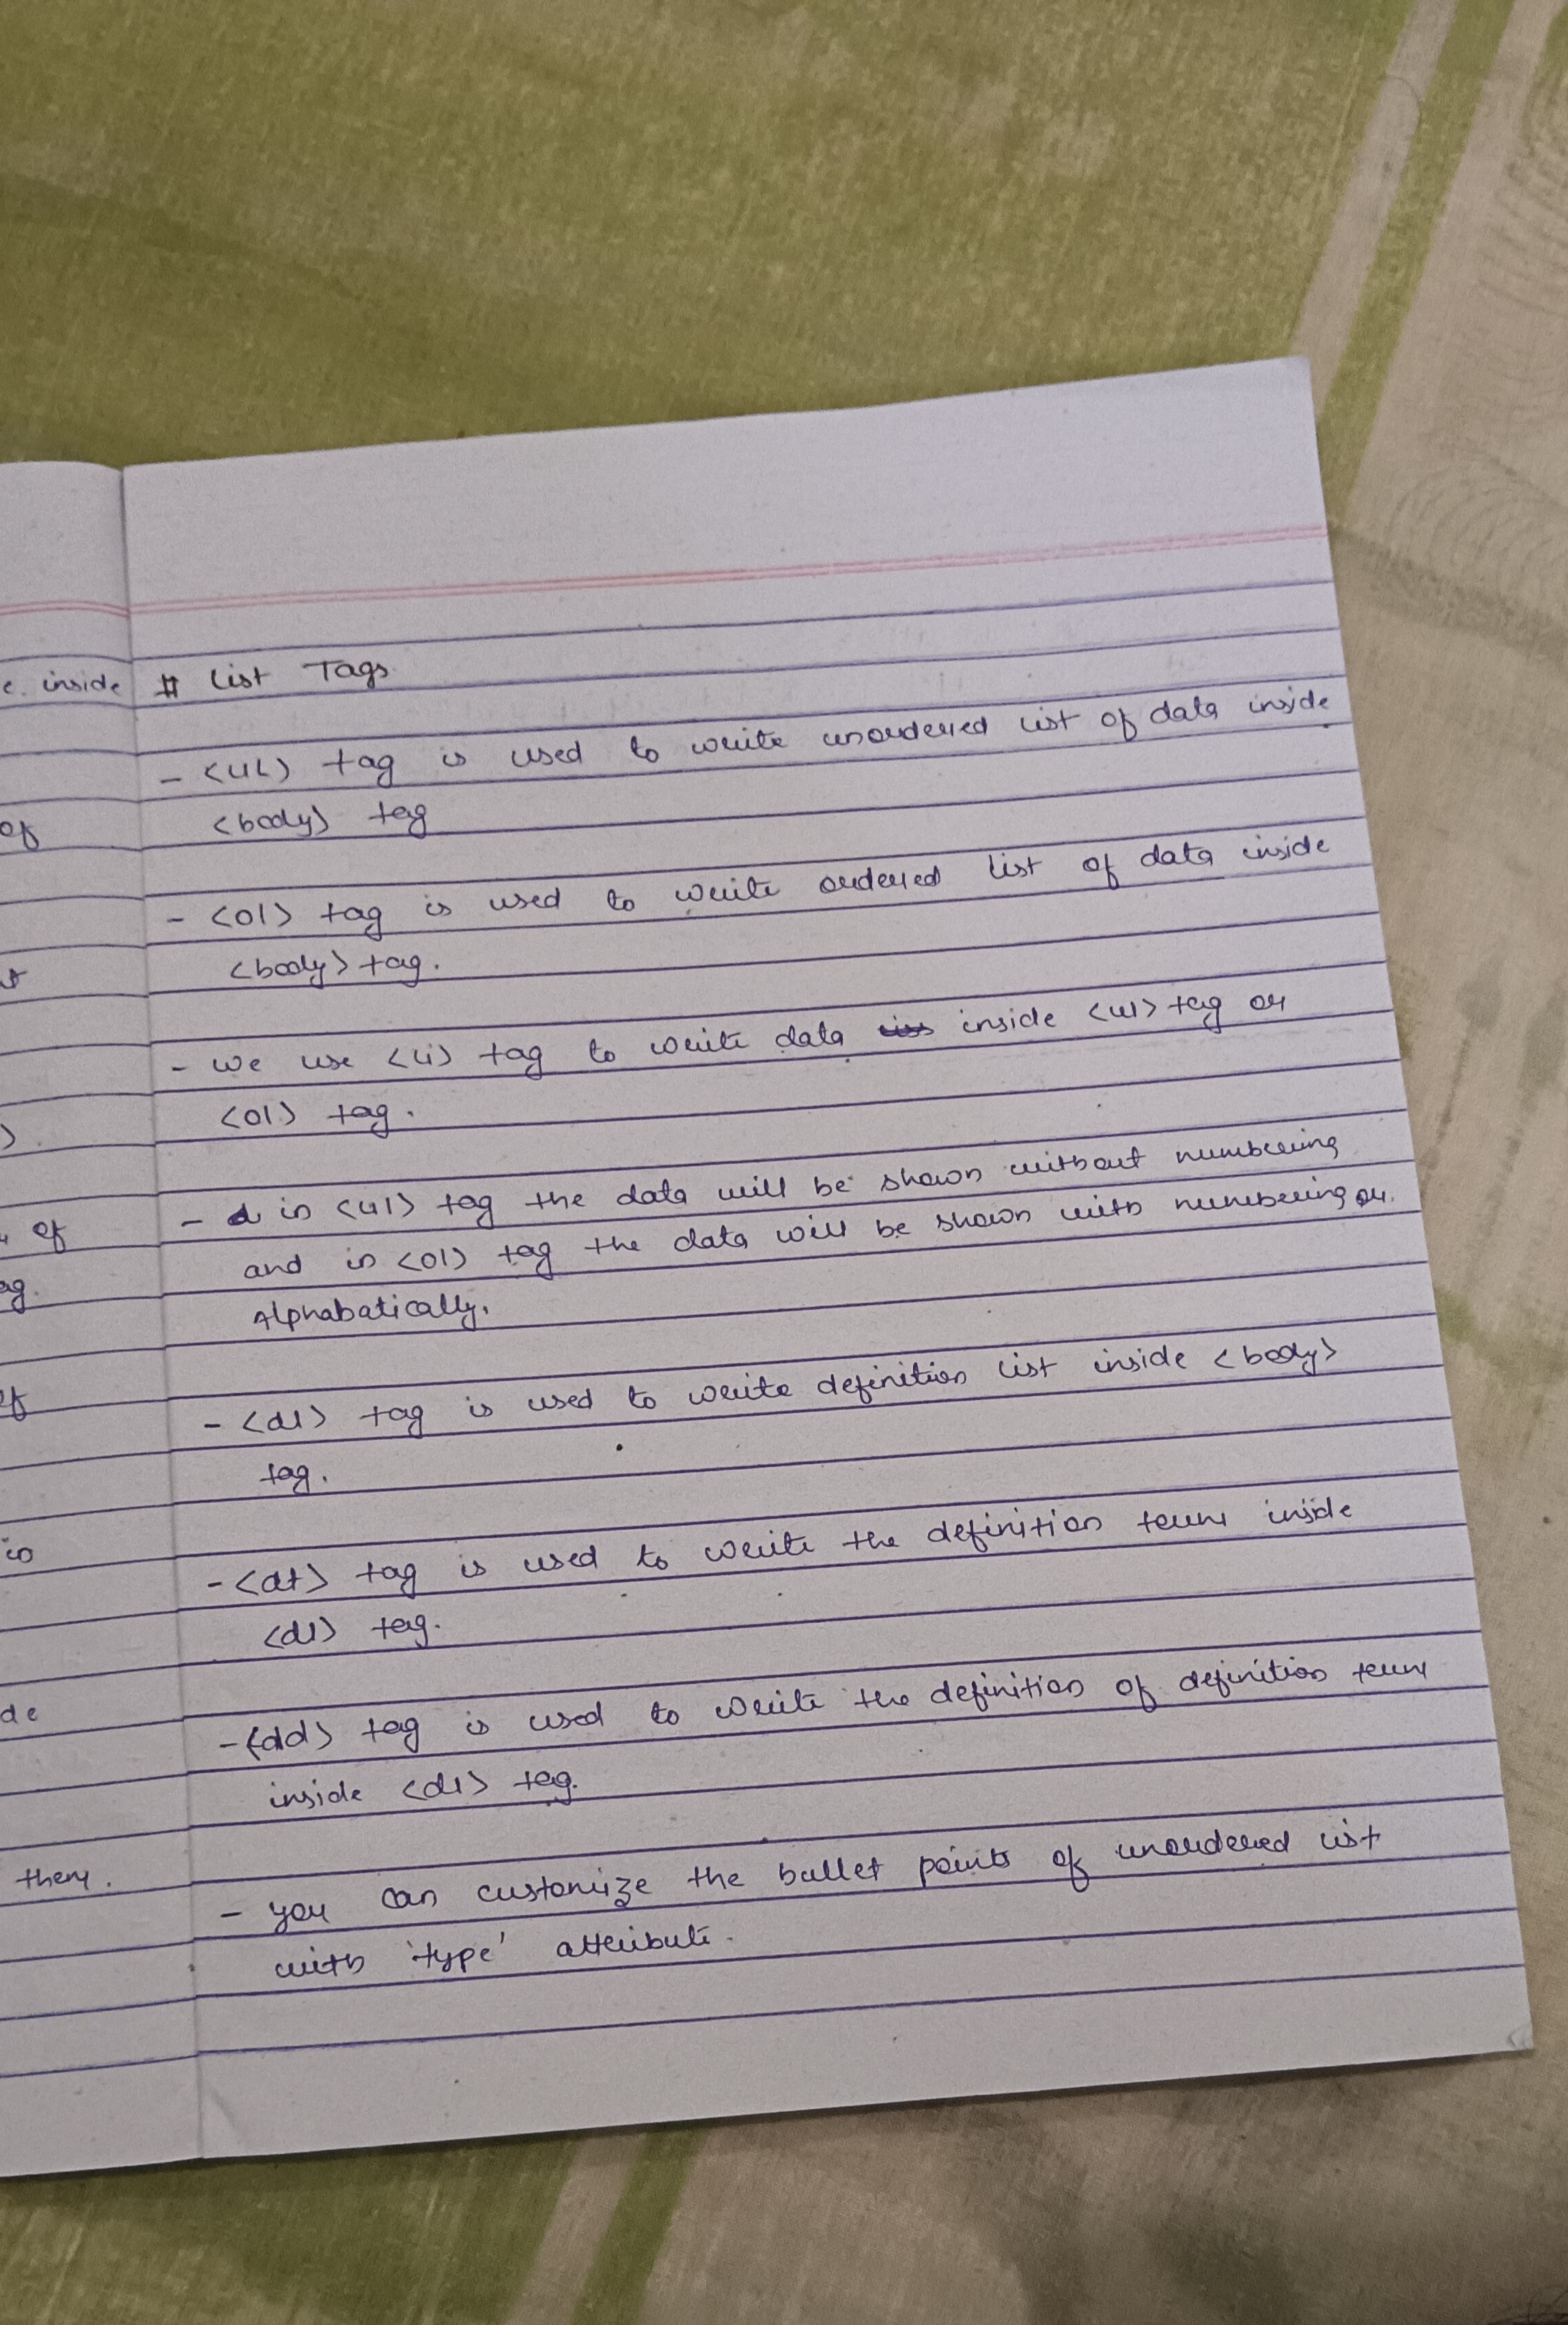 e. inside
of
of
ag.
of
in
de
them.
# List Tags
- <ul> tag is used to write unordered list of data inside
<body> tag
- <ol> tag is used to write ordered list of data inside
<body> tag.
- we use <li> tag to write data inside <ul> tag or
<ol> tag.
- in <ul> tag the data will be shown without numbering
and in <ol> tag the data will be shown with numbering or
Alphabatically.
- <dl> tag is used to write definition list inside <body>
tag.
- <dt> tag is used to write the definition term inside
<dl> tag.
- <dd> tag is used to write the definition of definition term
inside <dl> tag.
- you can customize the bullet points of unordered list
with 'type' attribute.